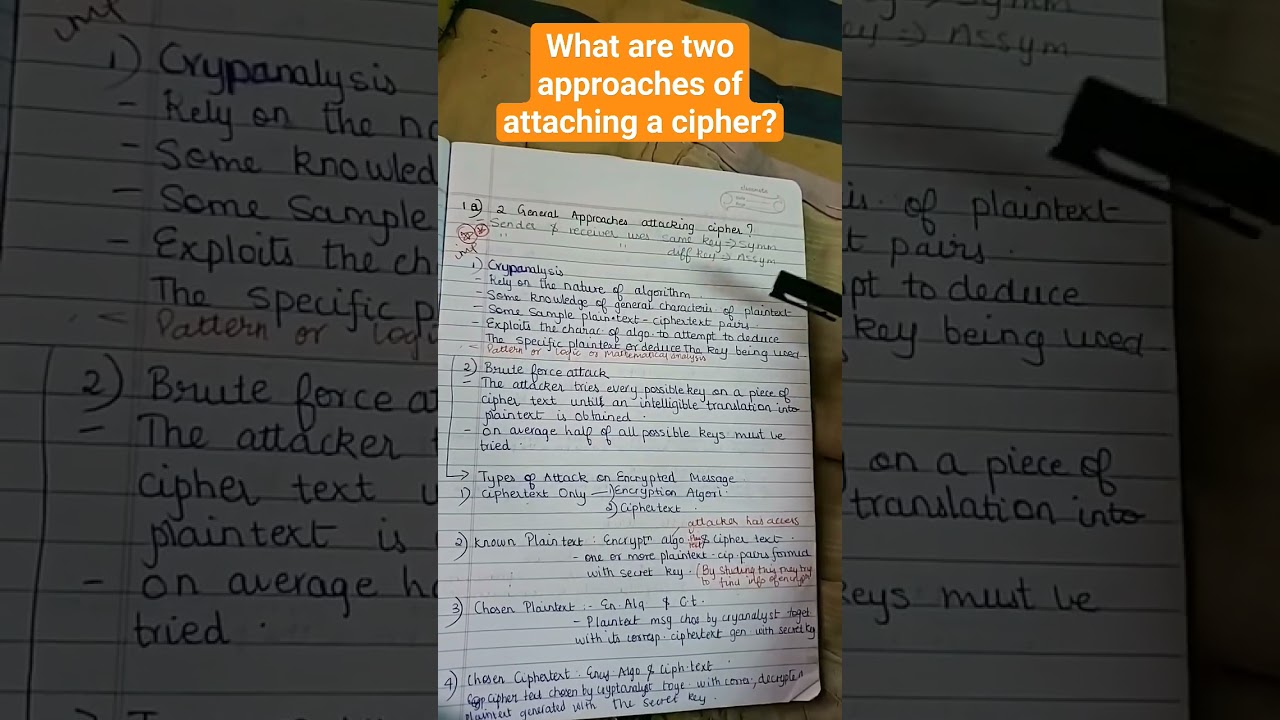 What are two
approaches of
attaching a cipher?
classmate
1 Q) 2 General Approaches attacking cipher?
Sender & receiver uses same key => Symm
" " diff key => Assym
imt
1) Crypanalysis
- Rely on the nature of algorithm.
- Some knowledge of general characteris of plaintext
- Some sample plain-text-ciphertext pairs.
- Exploits the charac of algo to attempt to deduce
The specific plaintext or deduce the key being used
- Pattern or logic or Mathematical analysis
2) Brute force attack
- The attacker tries every possible key on a piece of
cipher text until an intelligible translation into
plaintext is obtained.
- On average half of all possible keys must be
tried.
→ Types of Attack on Encrypted Message.
1) Ciphertext Only — 1) Encryption Algori.
2) Ciphertext.
attacker has access
2) Known Plaintext : Encryptn algo & cipher text.
- one or more plaintext-cip. pairs formed
with secret key. (By studing this they try
to find info of encrypt)
3) Chosen Plaintext :- En. Alg & C.t.
- Plaintext msg chos by cryanalyst toget
with its corresp. ciphertext gen with secret key
4) Chosen Ciphertext : Ency. Algo & Ciph.text.
Cipher text chosen by cryptanalyst toge. with corres. decrypted
plaintext generated with the secret key.
imt
1) Crypanalysis
- Rely on the na
- Some knowled
- Some Sample
- Exploits the ch
The specific p
- Pattern or Logic
2) Brute force at
- The attacker
cipher text u
plaintext is
- On average ha
tried.
Symm
ey => Assym
is. of plaintext
t pairs.
pt to deduce
key being used
on a piece of
translation into
keys must be